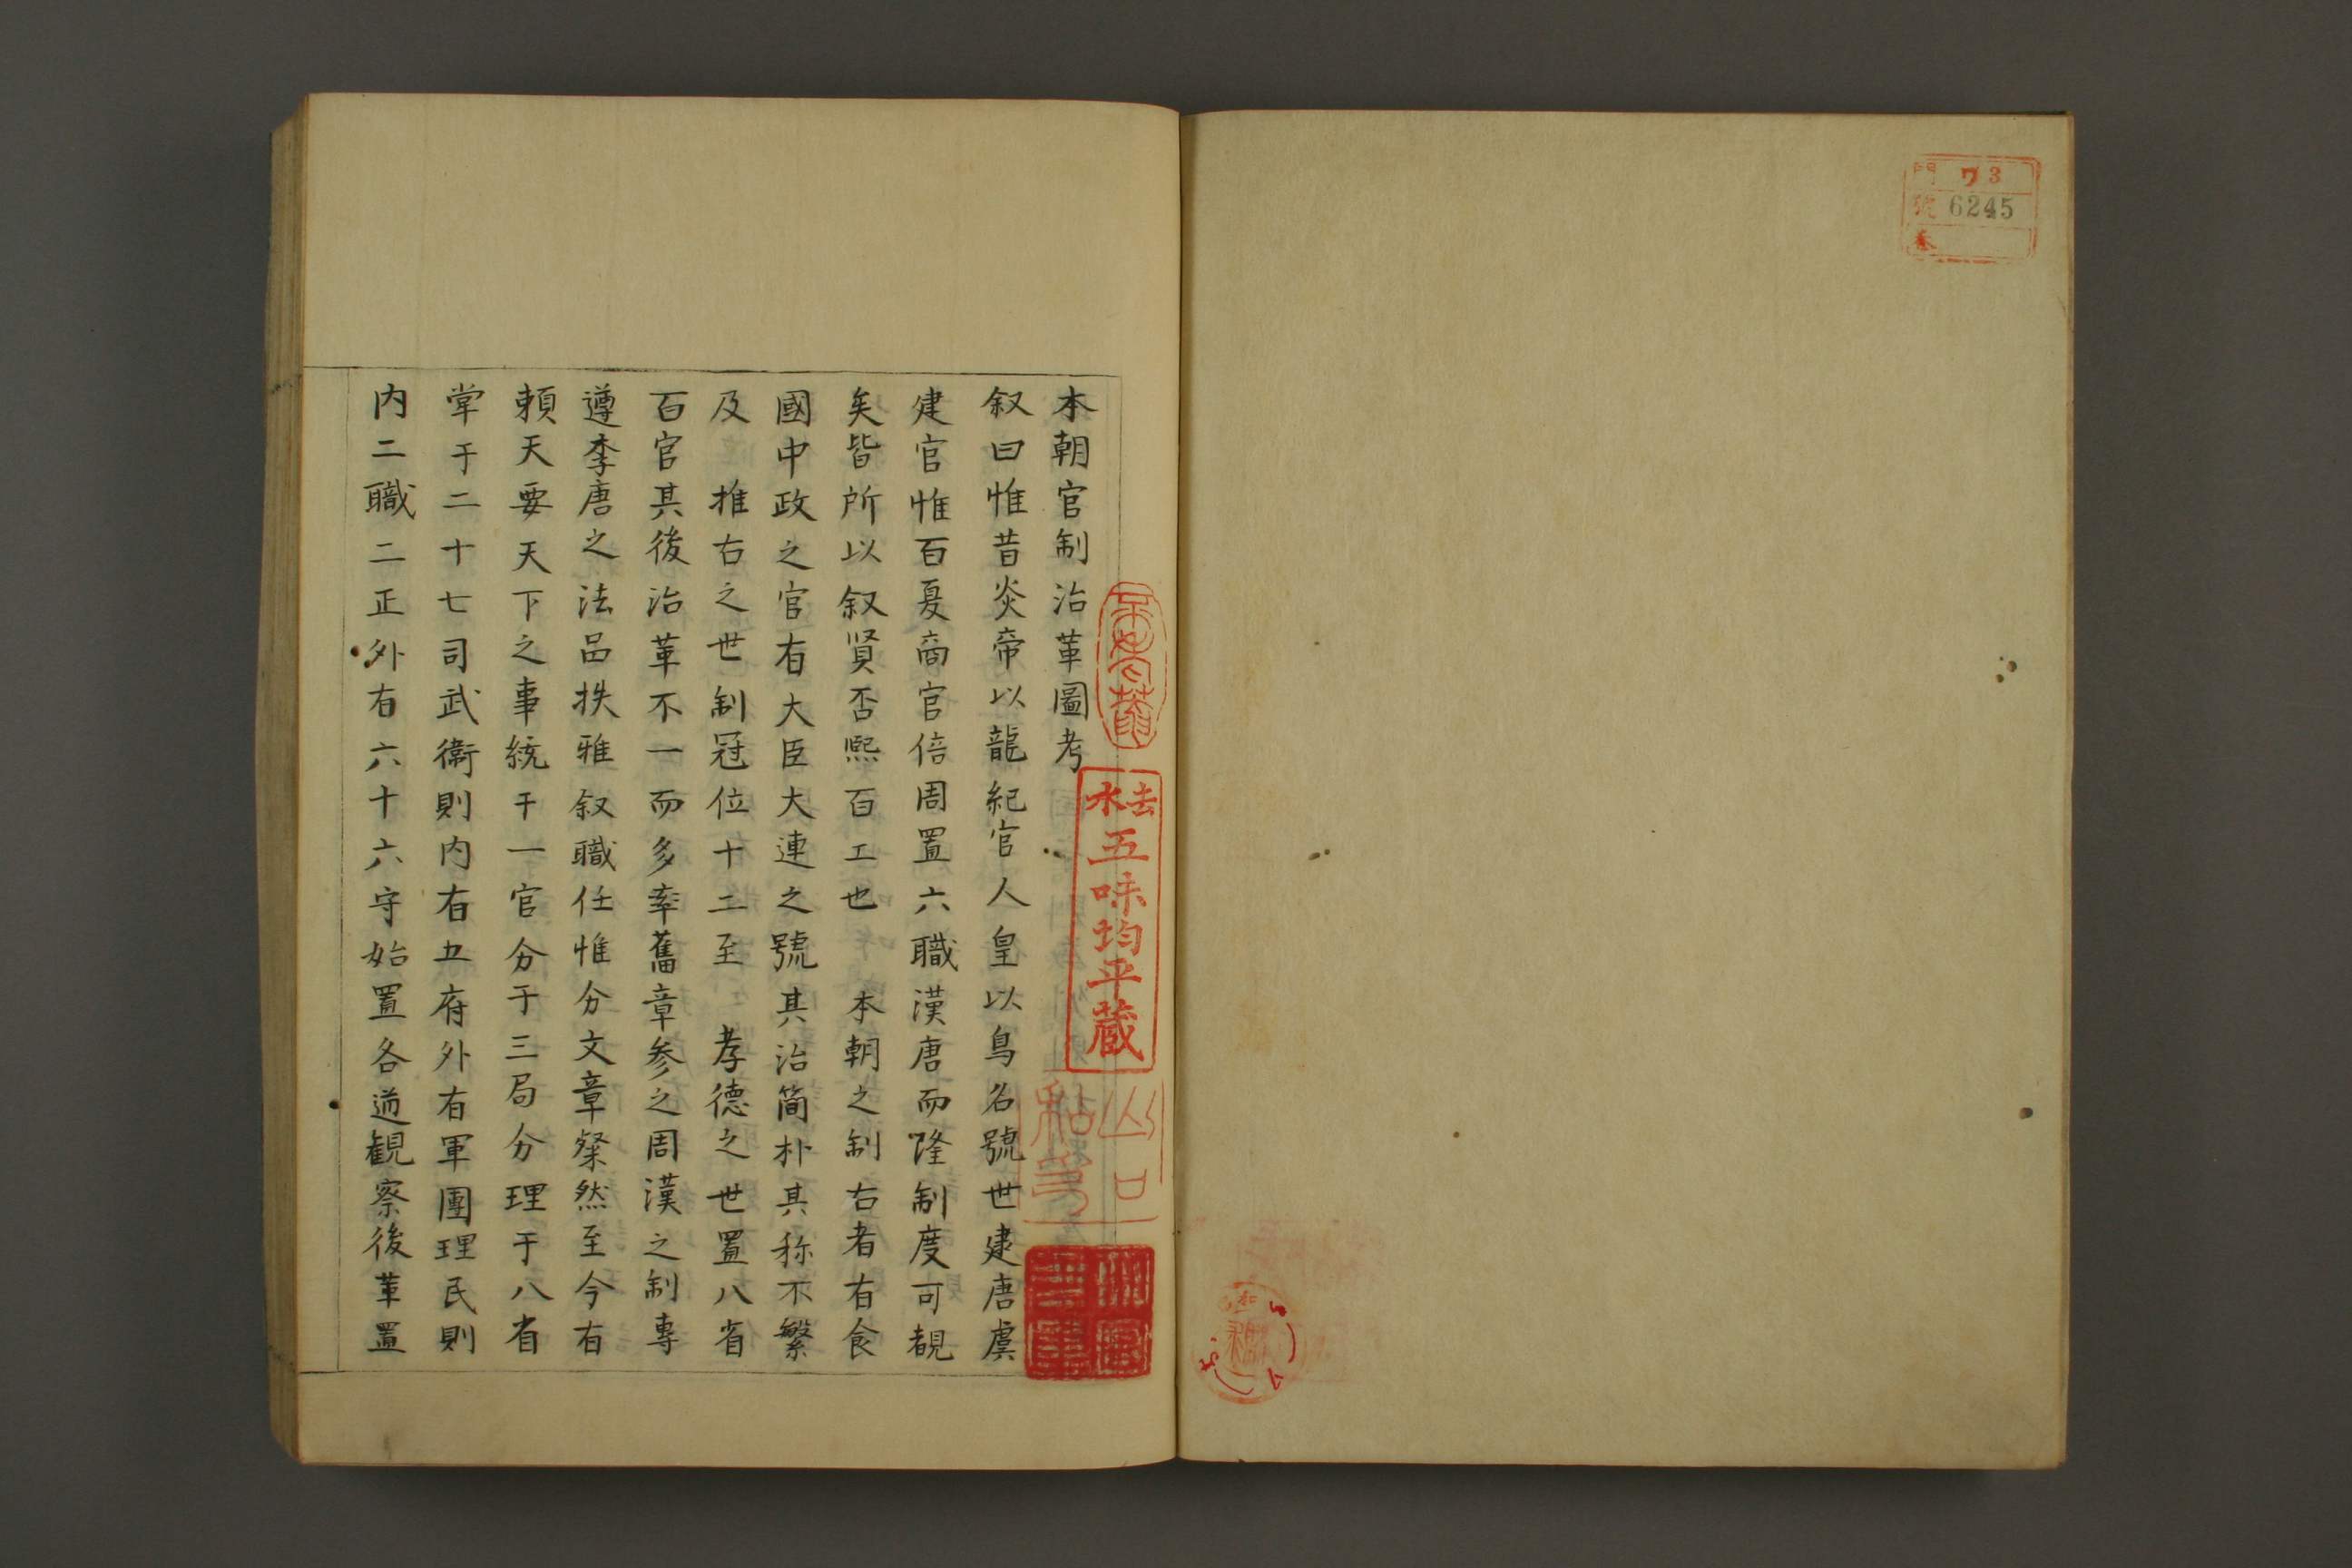 門 ワ3
號 6245
卷
本朝官制沿革圖考
叙曰惟昔炎帝以龍紀官人皇以鳥名號世建唐虞
建官惟百夏商官倍周置六職漢唐而隆制度可覩
矣皆所以叙賢否熙百工也 本朝之制古者有食
國中政之官有大臣大連之號其治簡朴其称不繁
及 推古之世制冠位十二至 孝德之世置八省
百官其後沿革不一而多率舊章参之周漢之制專
遵李唐之法品秩雅叙職任惟分文章粲然至今有
頼天要天下之事統于一官分于三局分理于八省
掌于二十七司武衛則内有五府外有軍團理民則
内二職二正外有六十六守始置各道観察後革置
去水
五味均平蔵
山口